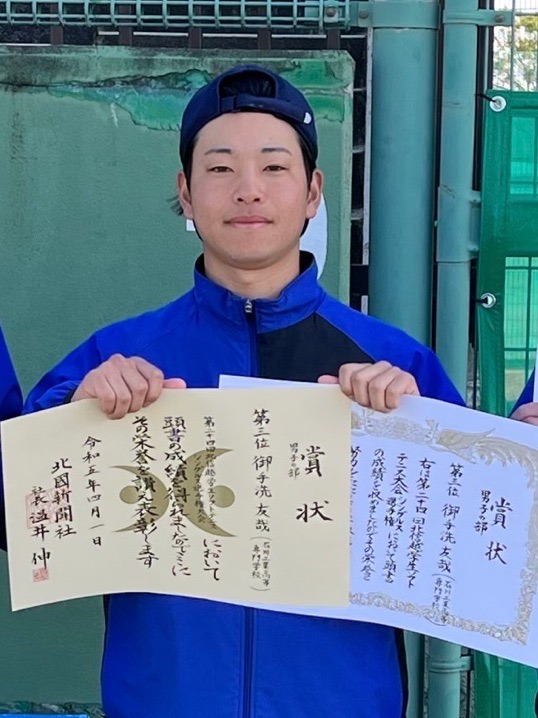 賞状
男子の部
第三位 御手洗友哉
(石川工業高等
専門学校)
第二十四回北信越学生ソフトテニス
シングルス選手権大会
において
頭書の成績を得られましたのでここに
その栄誉を讃え表彰します
令和五年四月一日
北國新聞社
社長 温井 伸
賞状
男子の部
第三位 御手洗友哉
(石川工業高等
専門学校)
右は第二十四回北信越学生ソフト
テニス大会シングルス選手権において頭書
の成績を収めましたのでその栄誉を